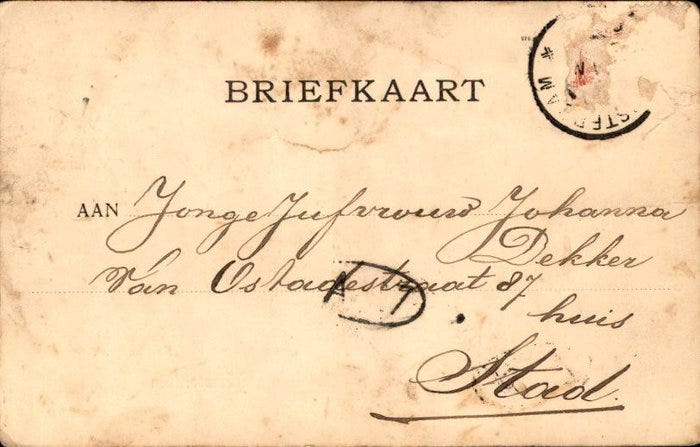 BRIEFKAART
AAN Jonge Jufvrouw Johanna
Dekker
Van Ostadestraat 87
huis
Stad.